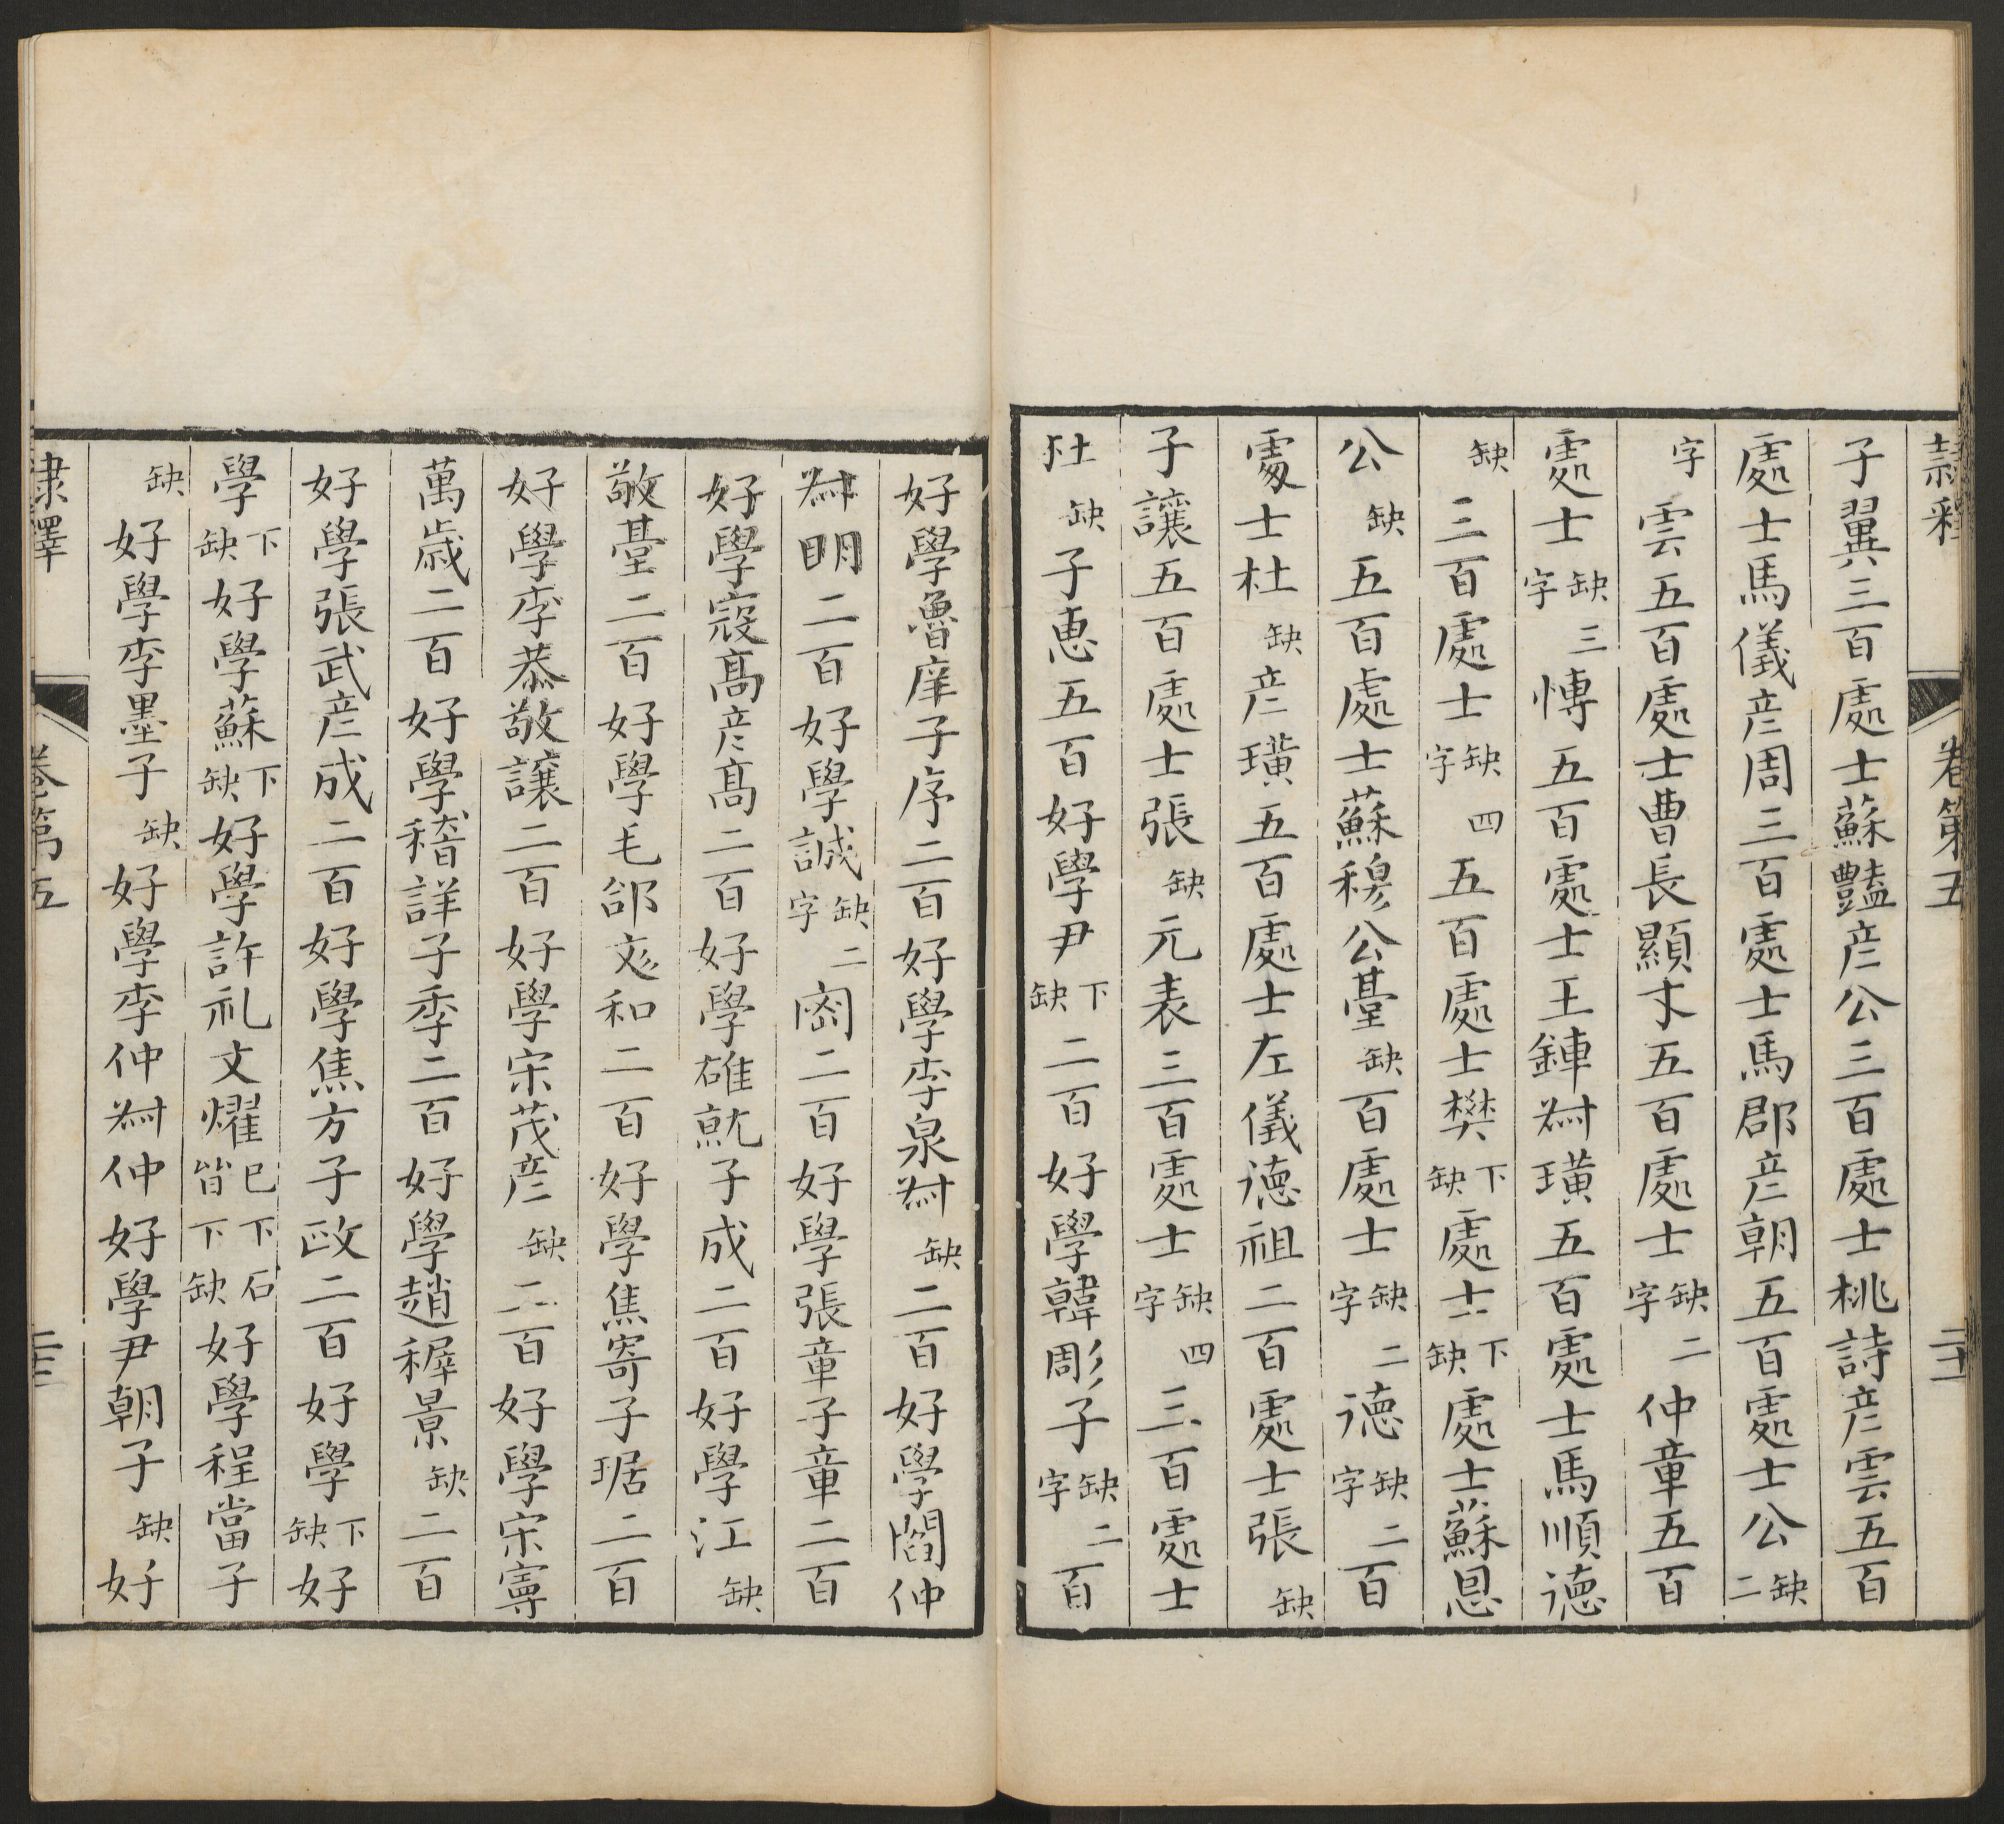 隸釋 卷第五 二十二
子翼三百處士蘇豔彦公三百處士桃詩彦雲五百
處士馬儀彦周三百處士馬郡彦朝五百處士公缺二
字雲五百處士曹長顯才五百處士缺二字仲章五百
處士缺三字慱五百處士王錬尗璜五百處士馬順德
缺三百處士缺四字五百處士樊下缺處士下缺處士蘇恩
公缺五百處士蘇穆公臺缺百處士缺二字德缺二字百
處士杜缺彦璜五百處士左儀德祖二百處士張缺
子讓五百處士張缺元表三百處士缺四字三百處士
杜缺子惠五百好學尹下缺二百好學韓彫子缺二字百
好學魯庠子序二百好學李泉尗缺二百好學閻仲
尗明二百好學誠缺二字㝛二百好學張童子童二百
好學寇高彦高二百好學碓就子成二百好學江缺
敬臺二百好學毛郃㤅和二百好學焦寄子琚二百
好學李恭敬讓二百好學宋茂彦缺二百好學宋寧
萬歲二百好學稽詳子季二百好學趙穉景缺二百
好學張武彦成二百好學焦方子政二百好學下缺好
學下缺好學蘇下缺好學許礼文燿巳下石皆下缺好學程當子
缺好學李墨子缺好學李仲尗仲好學尹朝子缺好
隸釋 卷第五 二十三